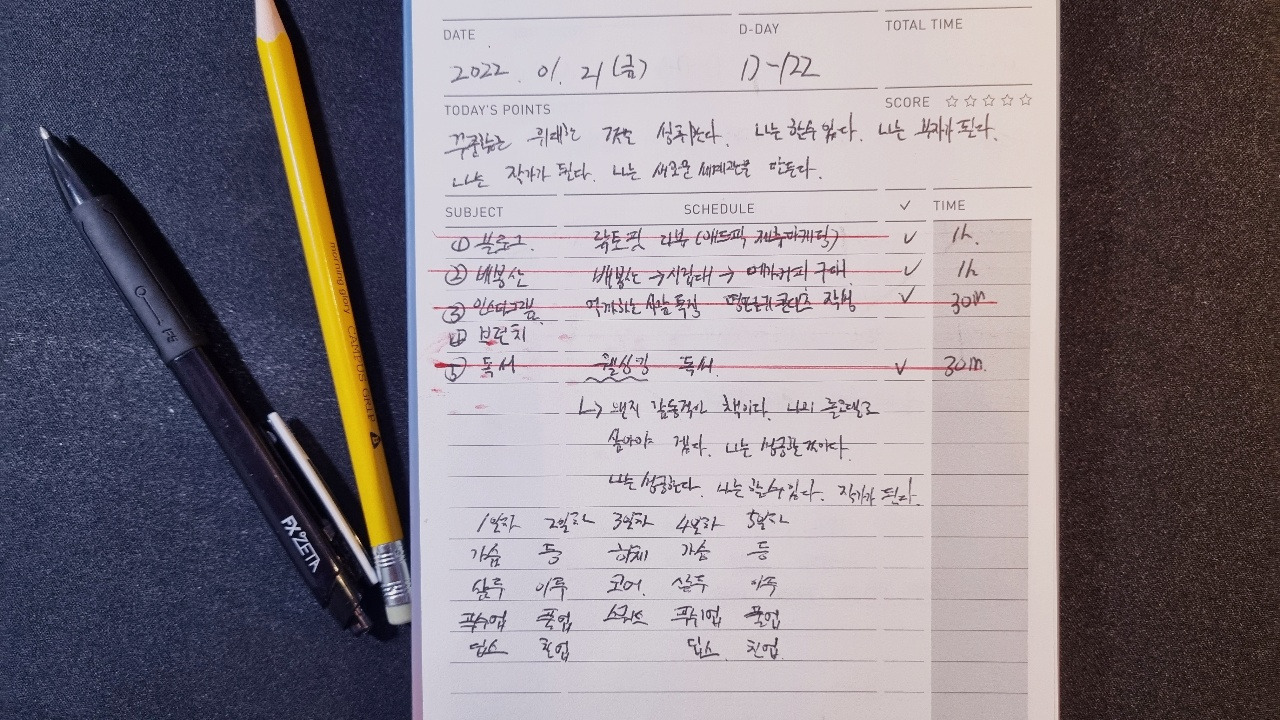 DATE D-DAY TOTAL TIME
2022. 01. 21 (금) D-122
TODAY'S POINTS SCORE ☆☆☆☆☆
성취한다. 나는 할수 있다. 나는 부자가 된다.
나는 작가가 된다. 나는 새로운 세계관을 만든다.
SUBJECT SCHEDULE ✓ TIME
① 블로그. 락토핏 리뷰 (애드픽 제휴마케팅) ✓ 1h.
② 배봉산 배봉산 → 시립대 → 메가커피 구매 ✓ 1h
③ 인스타그램. 착하는 사람 특징 콘텐츠 작성 ✓ 30m
④ 브런치
⑤ 독서 웰싱킹 독서. ✓ 30m.
↳ 왠지 책이다. 나의
살아야 겠다. 나는 성공할 것이다.
나는 성공한다. 나는 할 수 있다. 작가가 된다.
1일차 2일차 3일차 4일차 5일차
가슴 등 하체 가슴 등
삼두 이두 코어. 삼두 이두
푸쉬업 풀업 스쿼트 푸쉬업 풀업
딥스 친업 딥스. 친업.
morning glory CAMPUS GRIP B
FX ZETA